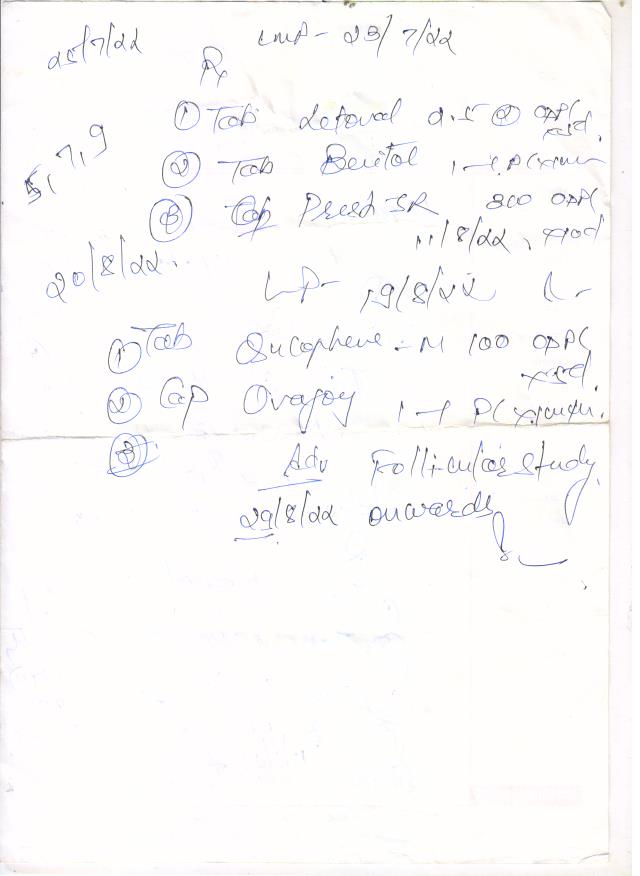 25/7/22 LMP - 23/7/22
Rx
① Tab Letoval 2.5 ② OD PC
x5d.
5, 7, 9
② Tab Benitol 1-1 PC x1m
③ Cap Presh SR 300 OD PC
11/8/22, x10d
20/8/22.
LMP - 19/8/22
① Tab Sucophene - M 100 OD PC
x5d.
② Cap Ovajoy 1-1 PC x1month.
③
Adv Follicular study
29/8/22 onwards